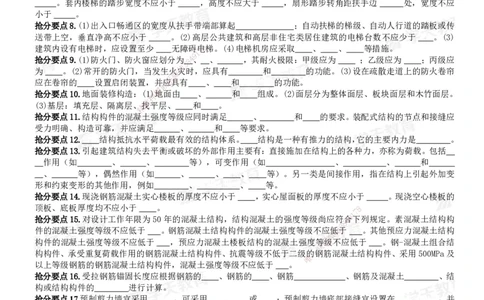 ____。套内楼梯的踏步宽度不应小于____，高度不应大于____，扇形踏步转角距扶手边____处，宽度不应小于____。
抢分要点8.(1)出入口畅通区的宽度从扶手带端部算起____；自动扶梯的梯级、自动人行道的踏板或传
送带上空，垂直净高不应小于____。(2)高层公共建筑和高层非住宅类居住建筑的电梯台数不应少于____。(3)
建筑内设有电梯时，应设置至少____无障碍电梯。(4)电梯机房应采取____、____、____等措施。
抢分要点9.(1)防火门、防火窗应划分为____、____、____，其耐火极限：甲级应为____；乙级应为____；丙级应
为____。(2)常开的防火门，当发生火灾时，应具有____和____的功能。(3)设在疏散走道上的防火卷帘
应在卷帘的____设置启闭装置，并应具有____、____和____的功能。
抢分要点10.地面装修构造：(1)地面由____、____和____组成。(2)面层分为整体面层、板块面层和木竹面层。
(3)基层：填充层、隔离层、找平层、____和____。
抢分要点11.结构构件的混凝土强度等级应同时满足____、____和____的要求。装配式结构的节点和接缝应
受力明确、构造可靠，并应满足____、____和____等要求。
抢分要点12.____结构抵抗水平荷载最有效的结构体系。____结构是一种有推力的结构,它的主要内力是____。
抢分要点13.引起建筑结构失去平衡或破坏的外部作用主要有：直接施加在结构上的各种力，亦称为荷载。包括__
__作用(如____、____、____等)，可变作用(如____、____、____、____和____
__、____等)，偶然作用(如____、____、____等)。另一类是间接作用，指在结构上引起外加变
形和约束变形的其他作用，例如____、____、____等。
抢分要点14.现浇钢筋混凝土实心楼板的厚度不应小于____，实心屋面板的厚度不应小于____。现浇空心楼板的
顶板、底板厚度均不应小于____。
抢分要点15.对设计工作年限为 50 年的混凝土结构，结构混凝土的强度等级尚应符合下列规定。素混凝土结构构
件的混凝土强度等级不应低于____。钢筋混凝土结构构件的混凝土强度等级不应低于____。其他预应力混凝土结构
构件的混凝土强度等级不应低于____，预应力混凝土楼板结构的混凝土强度等级不应低于____。钢-混凝土组合结
构构件、承受重复荷载作用的钢筋混凝土结构构件、抗震等级不低于二级的钢筋混凝土结构构件、采用 500MPa 及
以上等级钢筋的钢筋混凝土结构构件，混凝土强度等级不应低于____。
抢分要点16.受拉钢筋锚固长度应根据钢筋的____、钢筋的____、钢筋____、钢筋及混凝土____、结
构或结构构件的____进行计算。